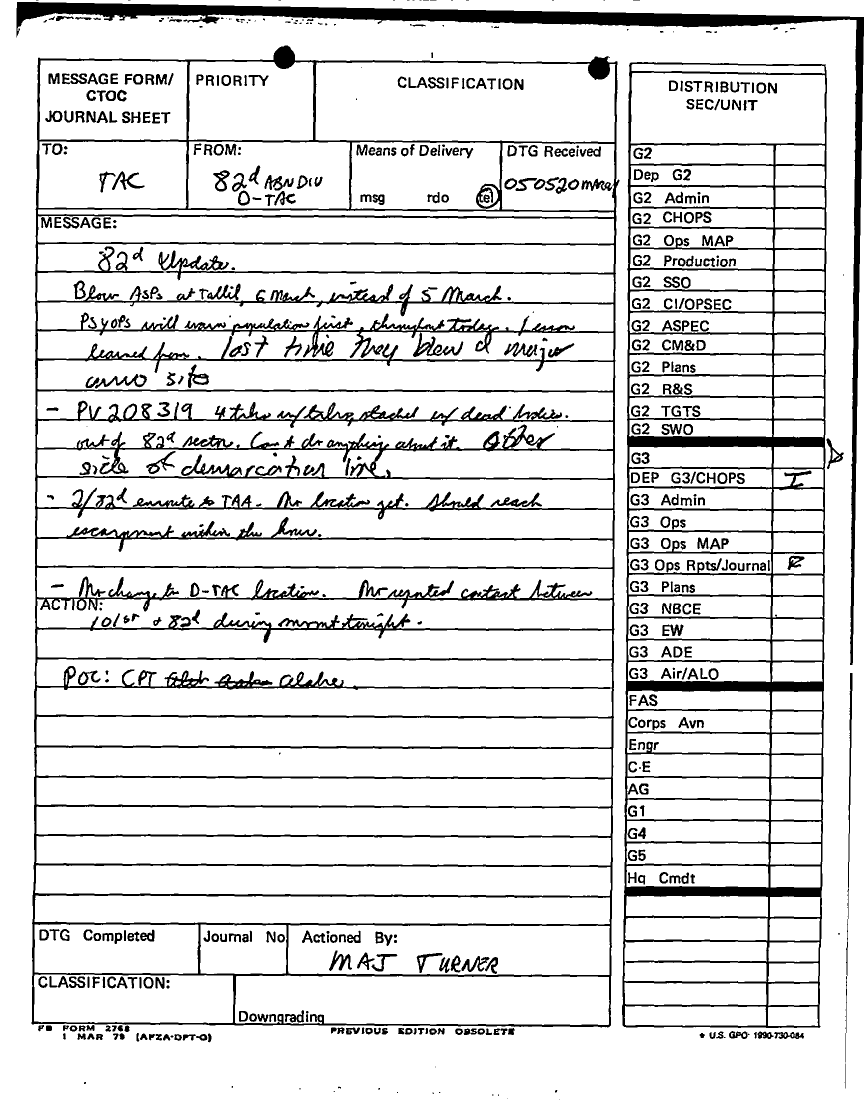 MESSAGE FORM/
CTOC
JOURNAL SHEET
PRIORITY
CLASSIFICATION
TO:
TAC
FROM:
82d ABN DIV
D-TAC
Means of Delivery
msg rdo tel
DTG Received
050520 mmar
MESSAGE:
82d Update.
Blow ASPs at Tallil, 6 March, instead of 5 March.
PSYOPs will warn population first, throughout today. Lesson
learned from. last time they blew a major
ammo site
- PV 208319 4 trks w/ stacked w/ dead bodies.
out of 82d sector. Can't do anything about it. Other
side of demarcation line,
- 2/82d enroute to TAA. No location yet. Should reach
escarpment within the hour.
- No change to D-TAC location. No reported contact between
ACTION:
101st & 82d during mvmt tonight.
POC: CPT
DTG Completed
Journal No
Actioned By:
MAJ TURNER
CLASSIFICATION:
Downgrading
FB FORM 2768
1 MAR 79 (AFZA-DPT-O)
PREVIOUS EDITION OBSOLETE
DISTRIBUTION
SEC/UNIT
G2
Dep G2
G2 Admin
G2 CHOPS
G2 Ops MAP
G2 Production
G2 SSO
G2 CI/OPSEC
G2 ASPEC
G2 CM&D
G2 Plans
G2 R&S
G2 TGTS
G2 SWO
G3
DEP G3/CHOPS I
G3 Admin
G3 Ops
G3 Ops MAP
G3 Ops Rpts/Journal
G3 Plans
G3 NBCE
G3 EW
G3 ADE
G3 Air/ALO
FAS
Corps Avn
Engr
C-E
AG
G1
G4
G5
Hq Cmdt
* U.S. GPO: 1990-730-084